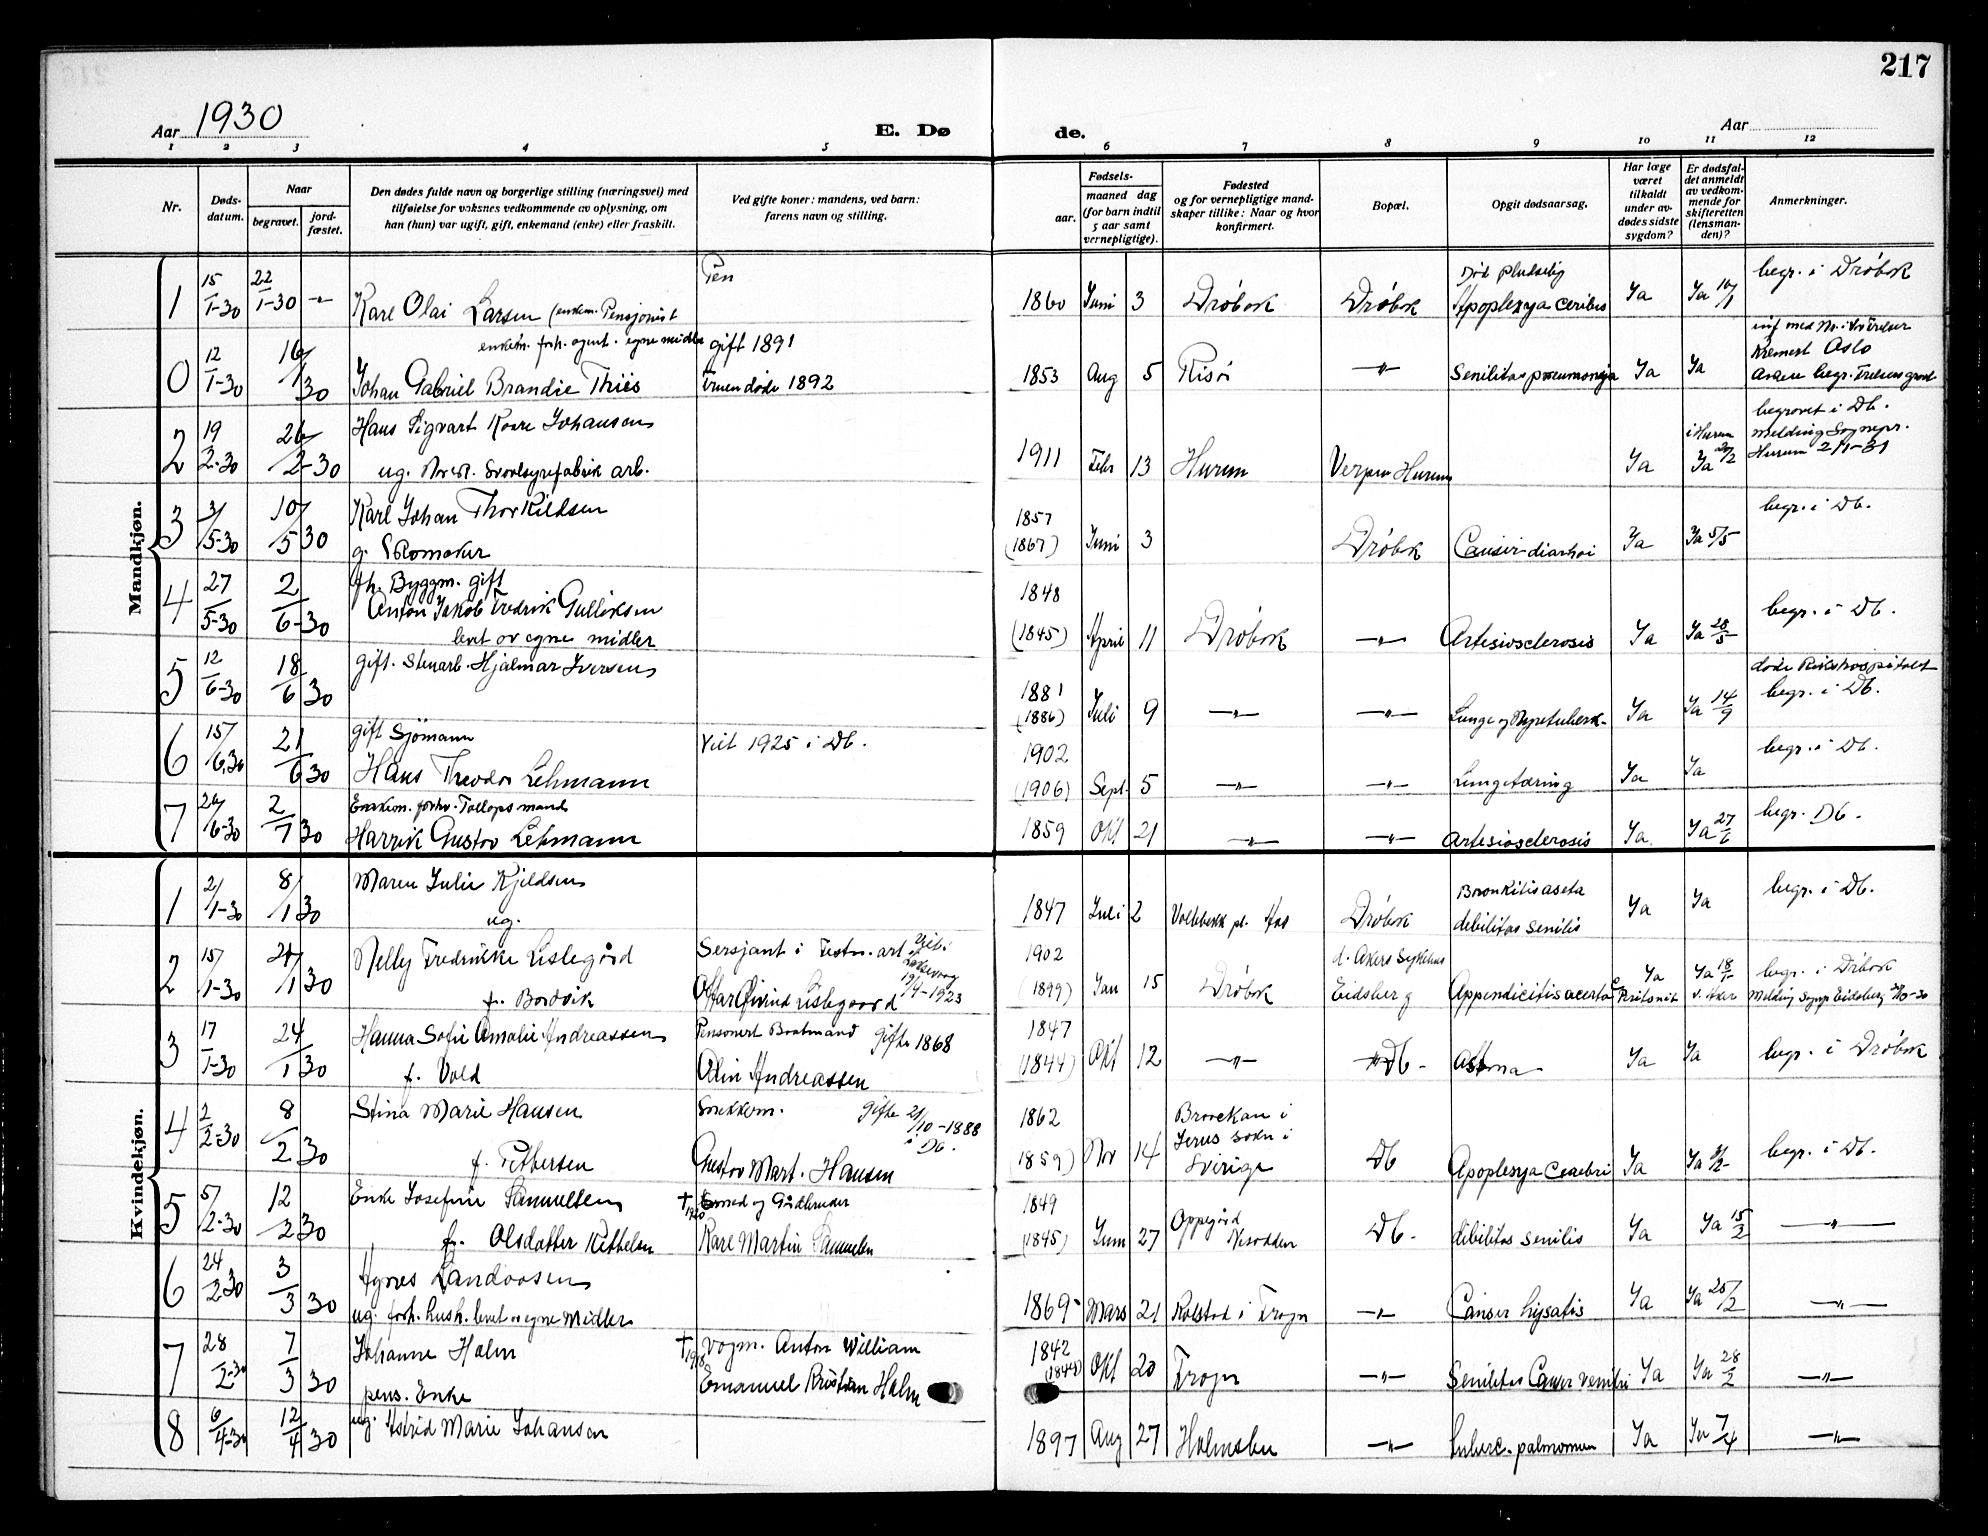 217
Aar 1930
E. Dø
de.
Aar
1 2 3 4 5 6 7 8 9 10 11 12
Nr.
Døds-
datum.
Naar
begravet.
jord-
fæstet.
Den dødes fulde navn og borgerlige stilling (næringsvei) med
tilføielse for voksnes vedkommende av oplysning, om
han (hun) var ugift, gift, enkemand (enke) eller fraskilt.
Ved gifte koner: mandens, ved barn:
farens navn og stilling.
Fødsels-
aar.
maaned dag
(for barn indtil
5 aar samt
vernepligtige).
Fødested
og for vernepligtige mand-
skaper tillike: Naar og hvor
konfirmert.
Bopæl.
Opgit dødsaarsag.
Har læge
været
tilkaldt
under av-
dødes sidste
sygdom?
Er dødsfal-
det anmeldt
av vedkom-
mende for
skifteretten
(lensman-
den)?
Anmerkninger.
Mandkjøn.
1 15/1-30 22/1-30 -"-
Karl Olai Larsen (enkem. Pensjonist
1860 Juni 3 Drøbak Drøbak
Død pludselig
Apoplexya ceribri Ja Ja 16/1
begr. i Drøbak
0 12/1-30 16/1 30
enkem. forh. agent. egne midler
Johan Gabriel Brandie Thiis
gift 1891
Fruen døde 1892
1853 Aug 5 Risør -"- Senilitas pneumonia Ja Ja
Kremert Oslo
2 19/2-30 26/2-30
Hans Sigvart Kaare Johansen
ug. Svovlsyrefabrik arb.
1911 Febr 13 Hurum Verpen Hurum Ja
i Hurum
Ja
begravet i Db.
melding Sognepr.
Hurum 2/1-31
3 3/5-30 10/5 30
Karl Johan Thorkildsen
g. Skomaker
1857
(1867) Juni 3 Drøbak Canser-diarhoi Ja Ja 5/5
begr. i Db.
4 27/5-30 2/6-30
fh. Byggm. gift
Anton Jakob Fredrik Gulliksen
levet av egne midler
1848
(1845) April 11 Drøbak -"- Artesiosclerosis Ja Ja 28/5
begr. i Db.
5 12/6-30 18/6 30
gift. Stenarb. Hjalmar Iversen
1881
(1886) Juli 9 -"- -"- Lunge og Nyretuberk- Ja Ja 14/9
døde Rikshospitalet
begr. i Db.
6 15/6.30 21/6 30
gift Sjømann
Hans Theodor Lehmann
Viet 1925 i Db.
1902
(1906) Sept. 5 -"- -"- Lungetæring Ja Ja
begr. i Db.
7 26/6-30 2/7 30
Enkem. forhv. Tollopsmand
Harrik Gustav Lehmann
1859 Okt 21 -"- -"- Artesiosclerosis Ja Ja 27/6
begr. Db.
Kvindekjøn.
1 2/1-30 8/1 30
Maren Julie Kjeldsen
ug.
1847 Juli 2 Drøbak
Bronkitis aseta
debilitas senilis Ja Ja
begr. i Db.
2 15/1-30 21/1 30
Nelly Fredrikke Lislegård
f. Bordvik
Sersjant i Festn. art
Ottar Øivind Lislegaard
19/4-1923
1902
(1899) Jan 15 Drøbak
d. Akers Sykehus
Eidsberg
Appendicitis acerta Peritonit Ja Ja 18/1
begr. i Drøbak
3 17/1-30 24/1 30
Hanna Sofie Amalie Andreassen
f. Vold
Pensonert Baatmand gifte 1868
Olin Andreassen
1847
(1844) Okt 12 -"- Db- Astma Ja Ja
begr. i Drøbak
4 2/2-30 8/2 30
Stina Marie Hansen
f. Pettersen
Snekkerm. gifte 21/10-1888
i Db.
Gustav Mart. Hansen
1862
(1859) Nov 14
Sverige
Db Apoplexya Cerebri Ja Ja
begr. i Db.
5 5/2-30 12/2 30
Enke Josefine Samuelsen
f. Olsdatter Kethelsen
† 1920 Smed og Gårdbruker
Karl Martin Samuelsen
1849
(1845) Juni 27
Oppegård
Nesodden
Db- debilitas senilis Ja Ja 15/2 -"-
6 24/2 30 3/3 30
Agnes Landvosen
ug. forh. hush. levet av egne Midler
1869 Mars 21 Kolstad i Frogn -"- Canser hysatis Ja Ja 25/2 -"-
7 28/2-30 7/3 30
Johanne Holm
pens. Enke
† 1918 Vogm. Anton William
Emanuel Kristian Holm
1842
(1844) Okt 20 Frogn -"- Senilitas Canser ventri Ja Ja 28/2 -"-
8 6/4-30 12/4 30
ug. Astrid Marie Johansen
1897 Aug 27 Holmsbu -"- Tuberc. palmonum Ja Ja 7/4 -"-